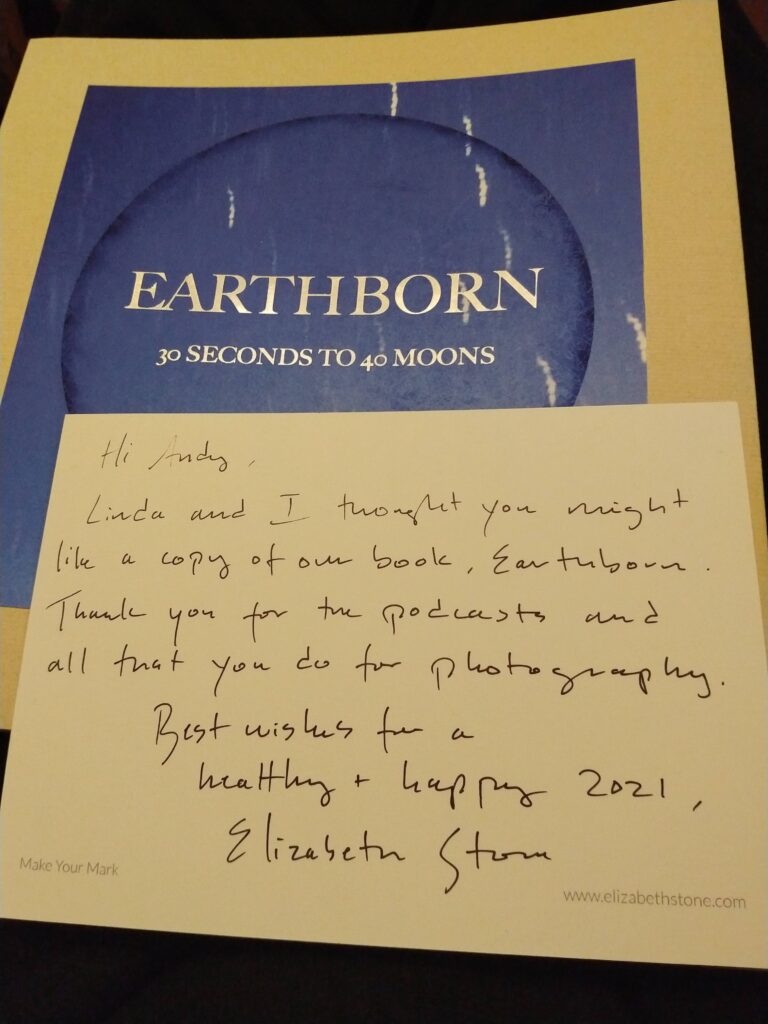 EARTHBORN
30 SECONDS TO 40 MOONS
Hi Andy,
Linda and I thought you might
like a copy of our book, Earthborn.
Thank you for the podcasts and
all that you do for photography.
Best wishes for a
healthy + happy 2021,
Elizabeth Stone
Make Your Mark
www.elizabethstone.com